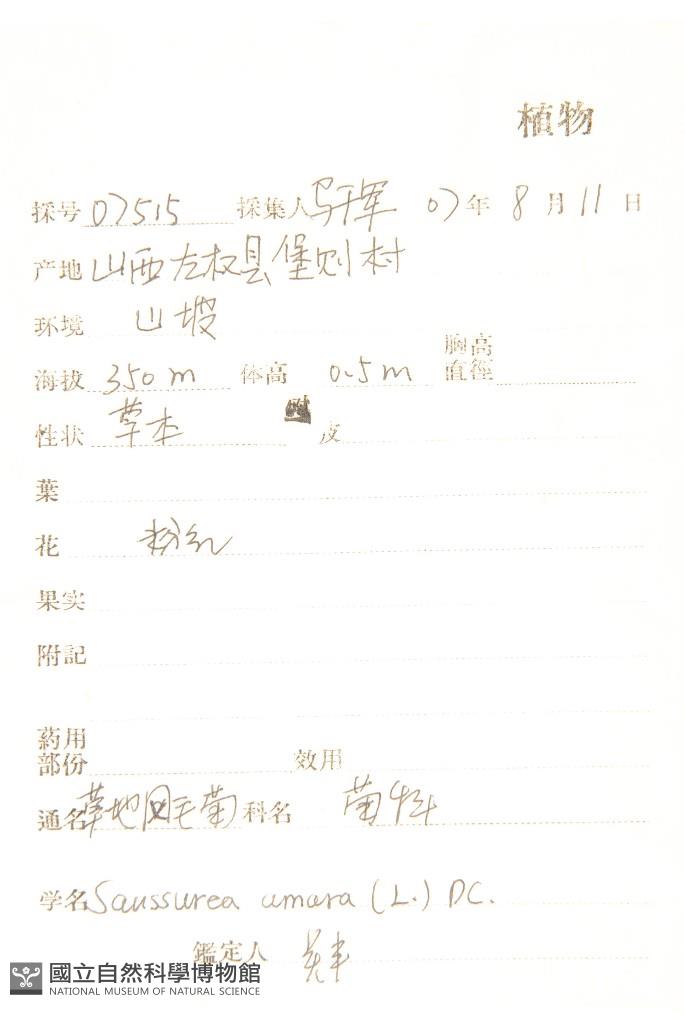 植物
採号 07515 採集人 马军 07年 8月 11日
产地 山西左权县堡则村
环境 山坡
海拔 350 m 体高 0.5 m 胸高直徑
性状 草本 皮
葉
花 粉红
果实
附記
葯用部份 效用
通名 草地风毛菊 科名 菊科
学名 Saussurea amara (L.) DC.
鑑定人
國立自然科學博物館
NATIONAL MUSEUM OF NATURAL SCIENCE